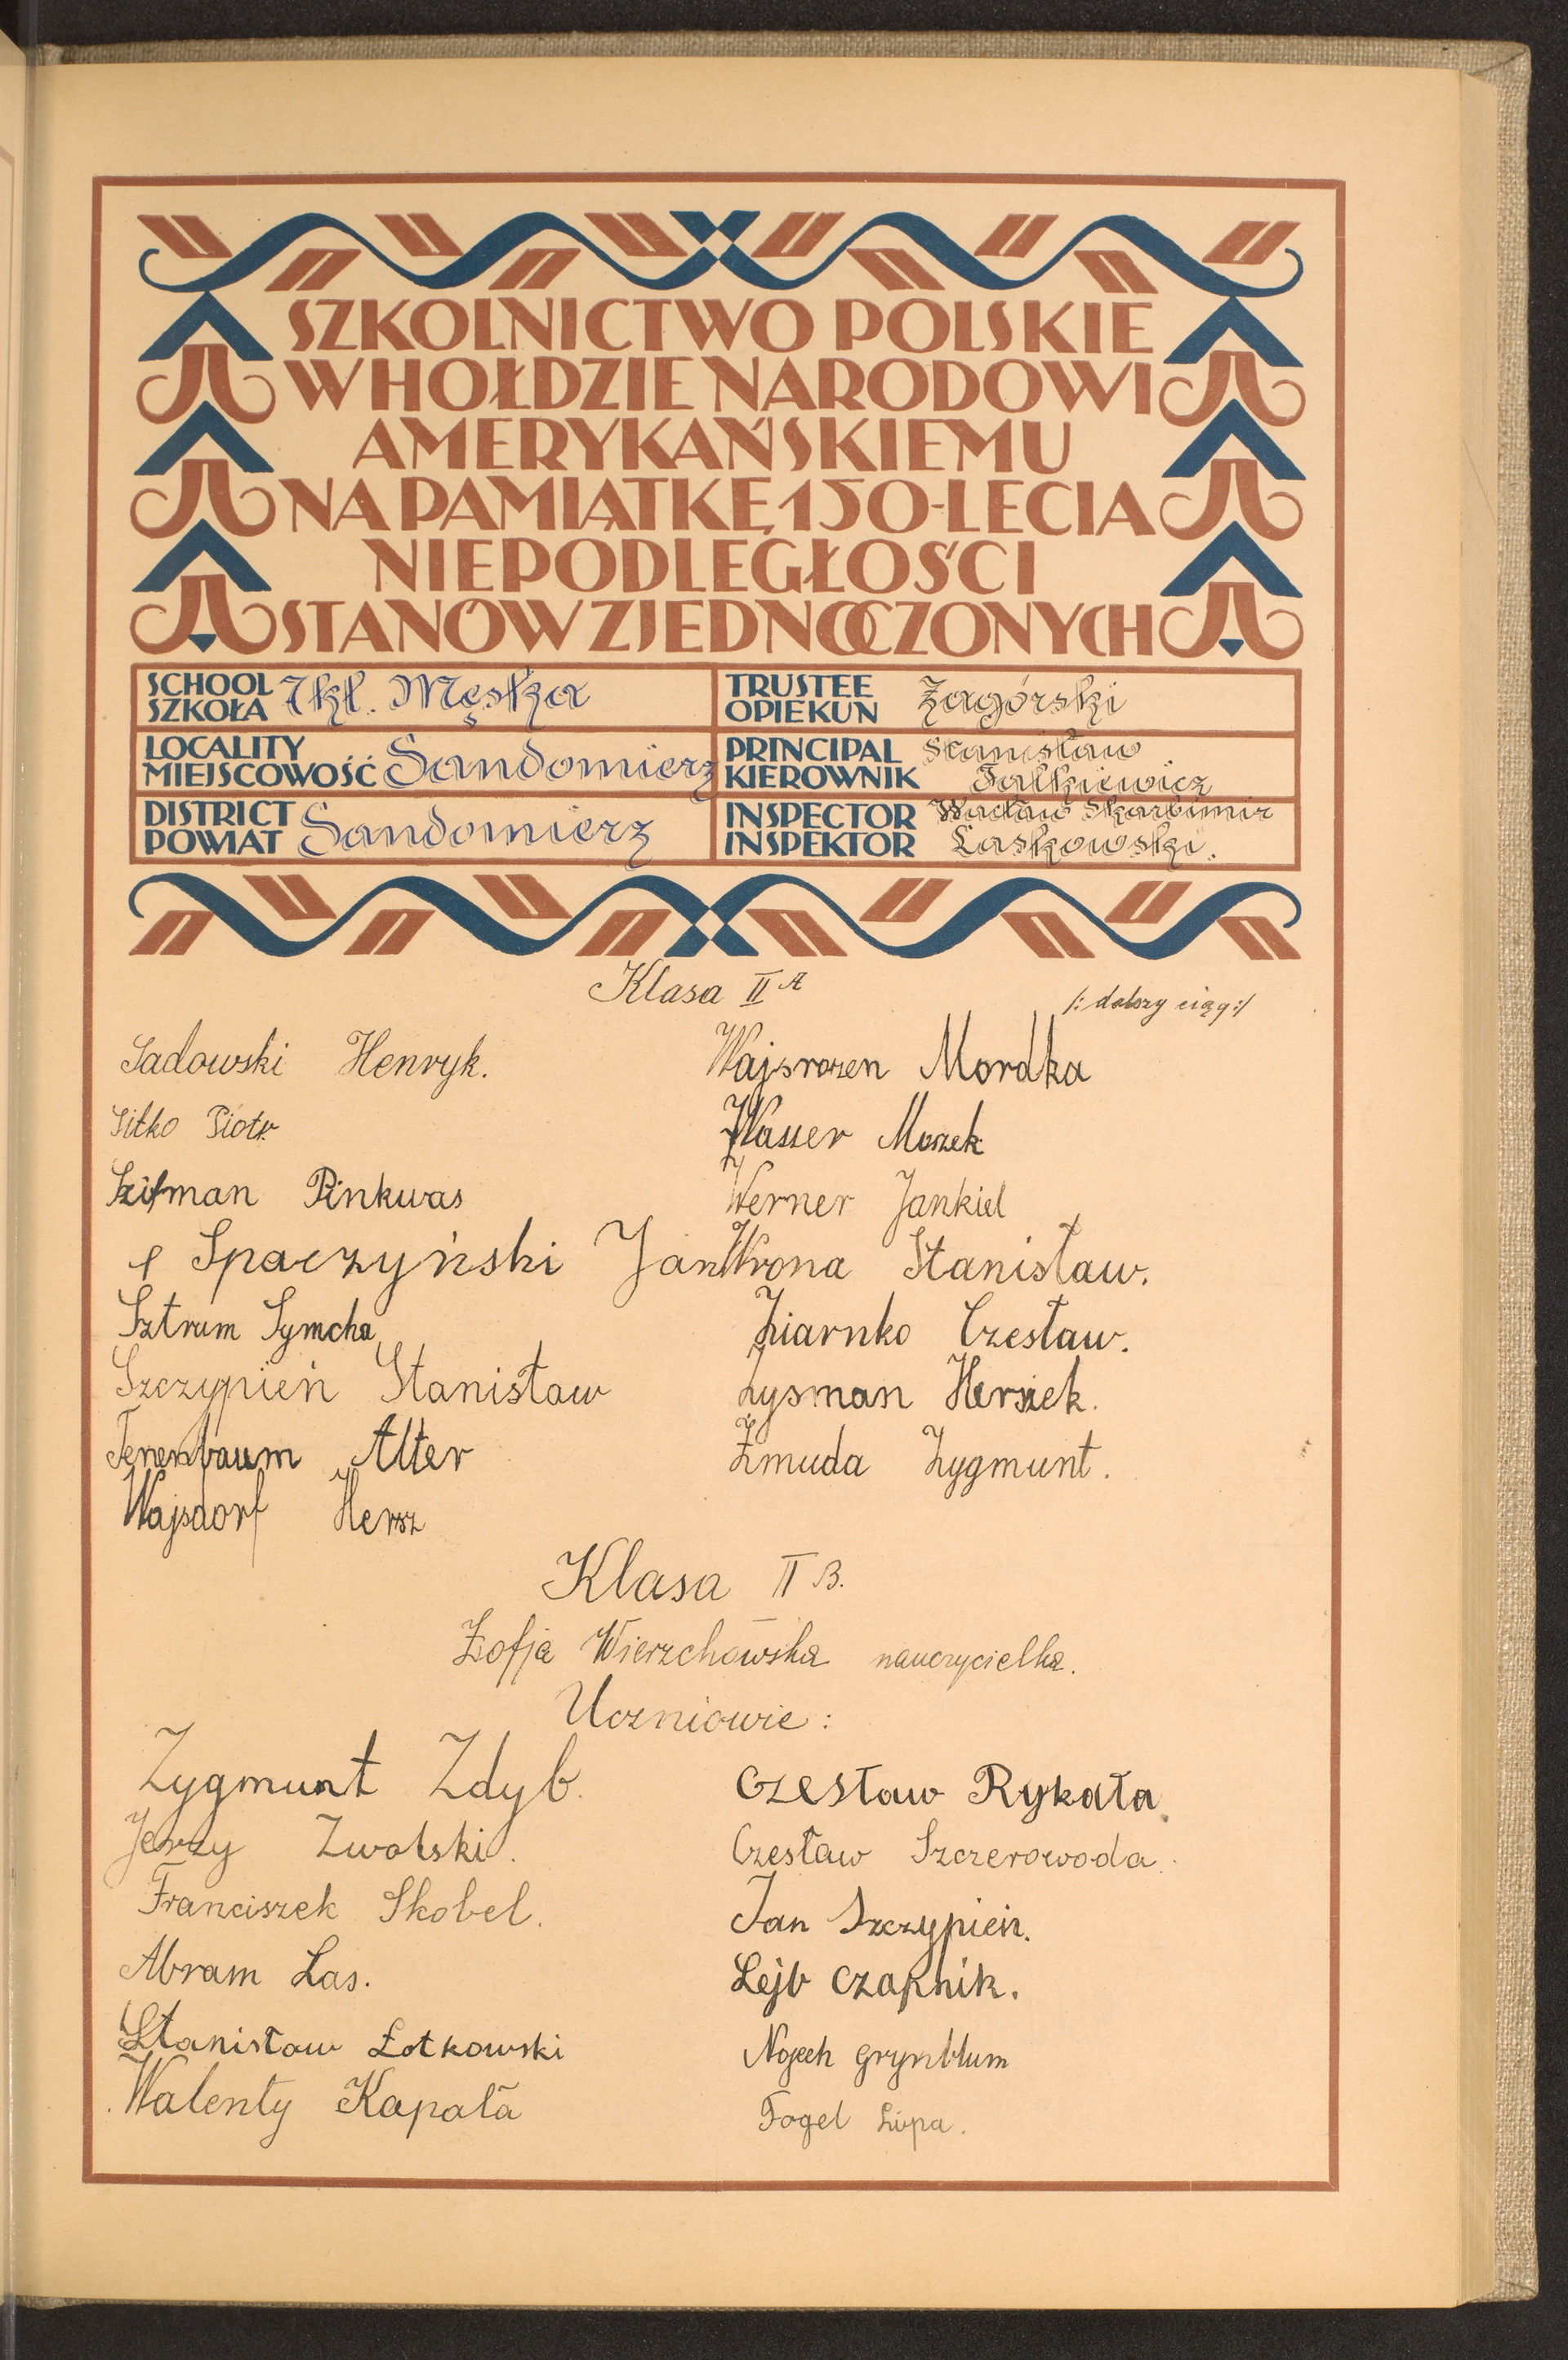 SZKOLNICTWO POLSKIE
W HOŁDZIE NARODOWI
AMERYKAŃSKIEMU
NA PAMIĄTKĘ 150-LECIA
NIEPODLEGŁOŚCI
STANÓW ZJEDNOCZONYCH
SCHOOL
SZKOŁA 7 kl. Męska
TRUSTEE
OPIEKUN Zagórski
LOCALITY
MIEJSCOWOŚĆ Sandomierz
PRINCIPAL
KIEROWNIK Stanisław
Falkiewicz
DISTRICT
POWIAT Sandomierz
INSPECTOR
INSPEKTOR Wacław Skarbimir
Laskowski.
Klasa II A
/: dalszy ciąg :/
Sadowski Henryk.
Sitko Piotr
Szifman Pinkwas
Spaczyński Jan
Sztrum Symcha
Szczypień Stanisław
Tenenbaum Alter
Wajsdorf Hersz
Wajsrozen Mordka
Wasser Moszek
Werner Jankiel
Wrona Stanisław.
Ziarnko Czesław.
Zysman Herszek.
Żmuda Zygmunt.
Klasa II B.
Zofja Wierzchowska nauczycielka.
Uczniowie :
Zygmunt Zdyb.
Jerzy Zwolski.
Franciszek Skobel.
Abram Las.
Stanisław Żołkowski
Walenty Kapała
Czesław Rykała
Czesław Szczerowoda.
Jan Szczypień.
Lejb Czapnik.
Nojech Grynblum
Fogel Lipa.